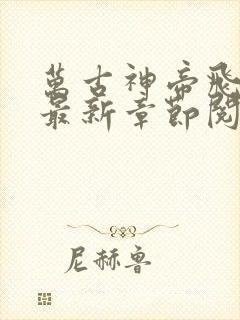 萬古神帝飛
最新章節閱
尼赫魯